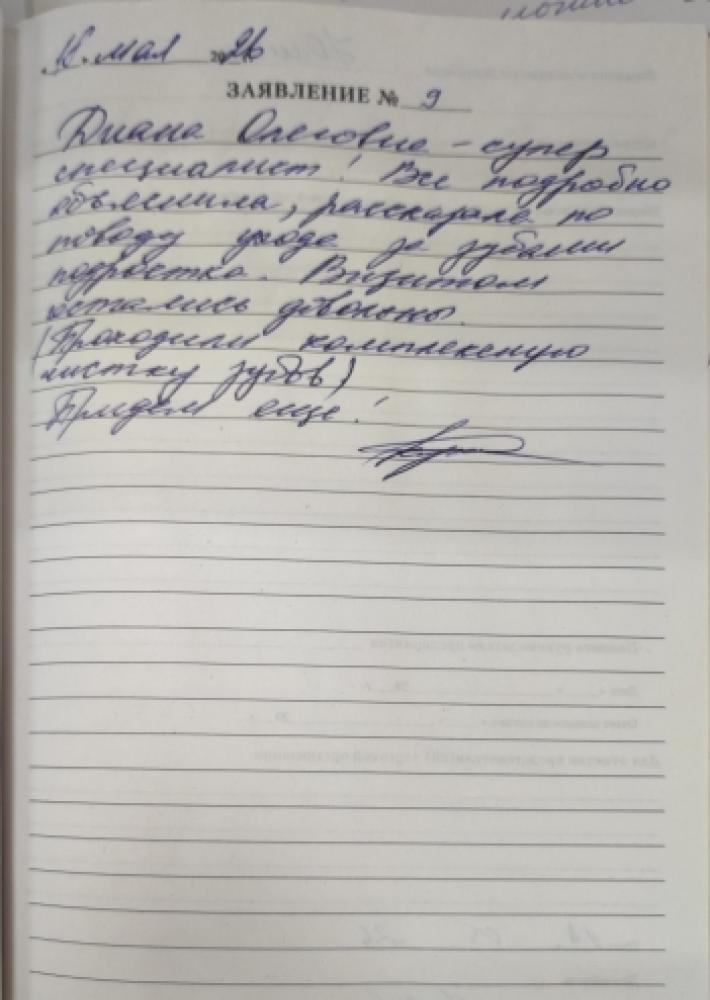 мая 2026
ЗАЯВЛЕНИЕ № 9
Диана Олеговна - супер
специалист! Все подробно
объяснила, рассказала по
поводу ухода за зубами
подростка. Визитом
остались довольны.
(Проходили комплексную
чистку зубов)
Придем еще!